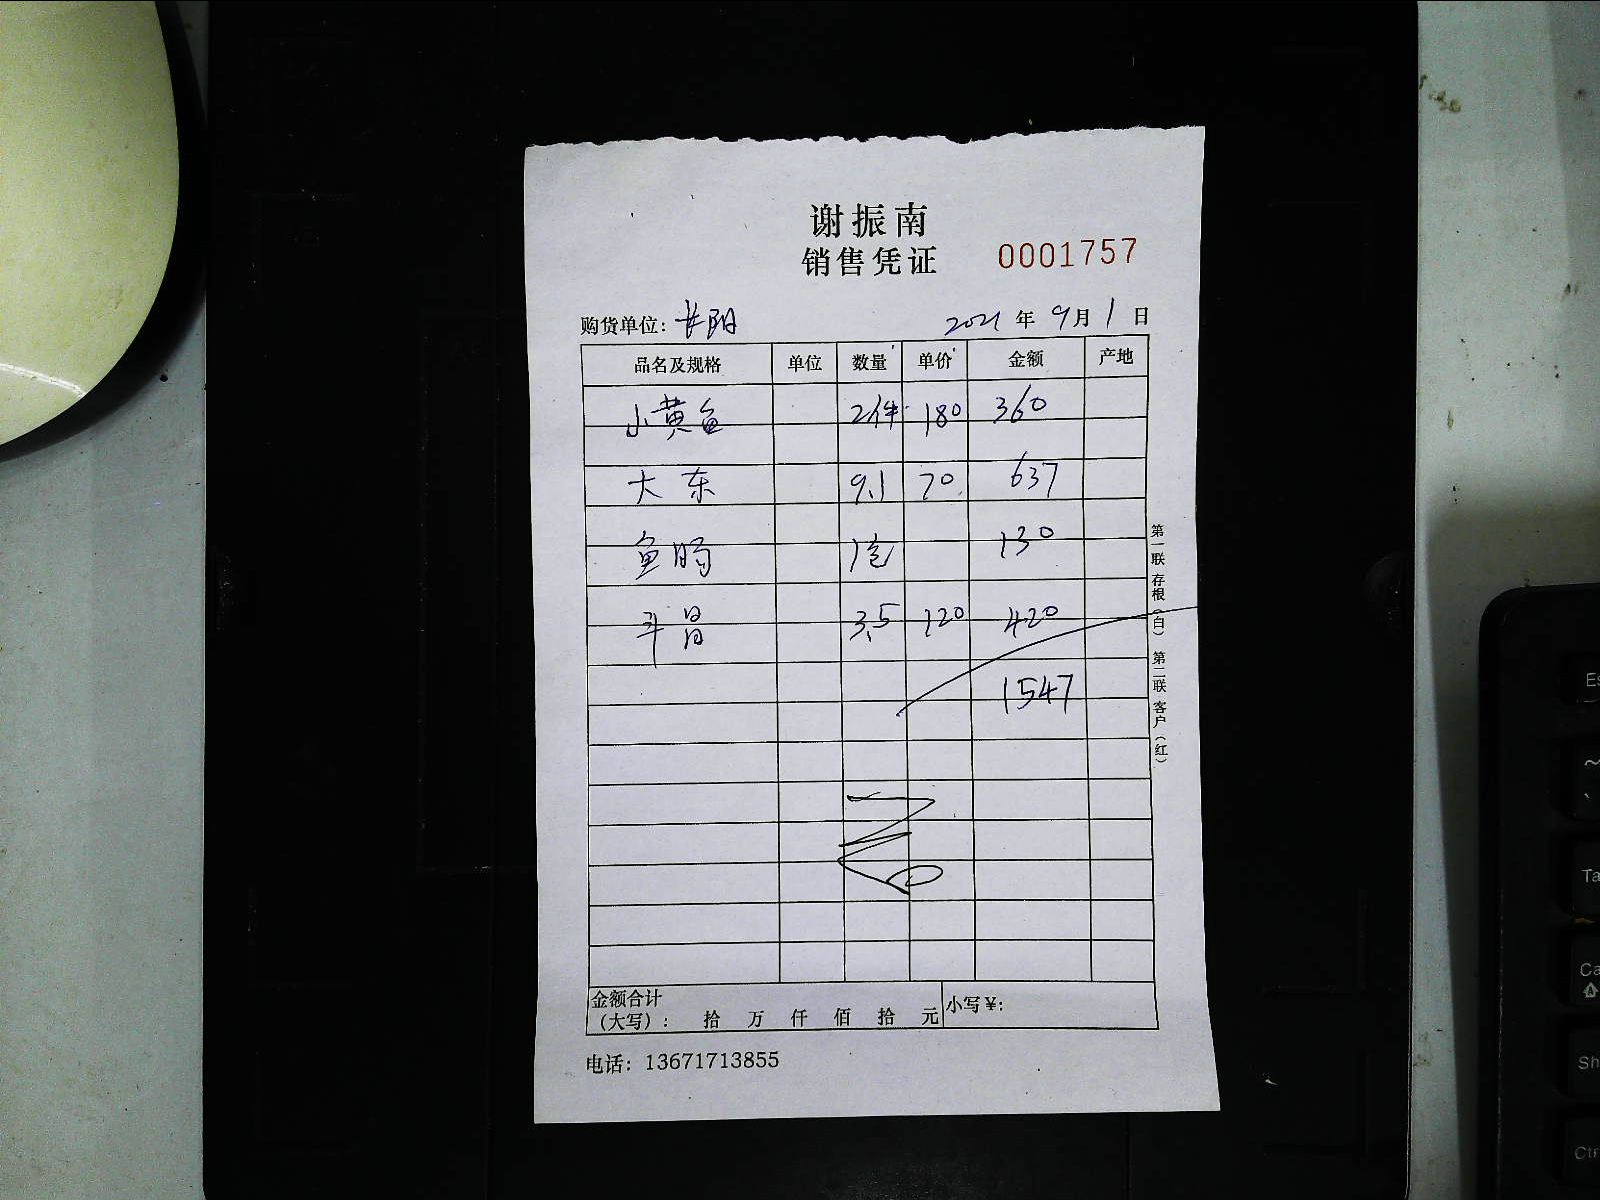 谢振南
销售凭证 0001757
购货单位: 长阳 2021 年 9 月 1 日
品名及规格 单位 数量 单价 金额 产地
小黄鱼 2件 180 360
大东 9.1 70 637
鱼肠 1包 130
斗昌 3.5 120 420
1547
金额合计
(大写): 拾 万 仟 佰 拾 元 小写¥:
电话: 13671713855
第一联 存根(白) 第二联 客户(红)
Es
~
、
Ta
Ca
Sh
Ctr